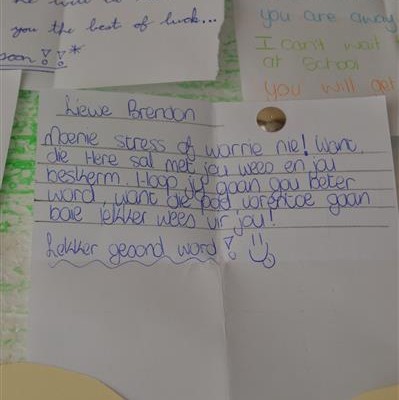 you the best of luck...
soon!!*
you are away
I can't wait
at School
You will get
Liewe Brendon
Moenie stress of worrie nie! Want,
die Here sal met jou wees en jou
beskerm. Hoop jy gaan gou beter
word, want die pad vorentoe gaan
baie lekker wees vir jou!
Lekker gesond word!